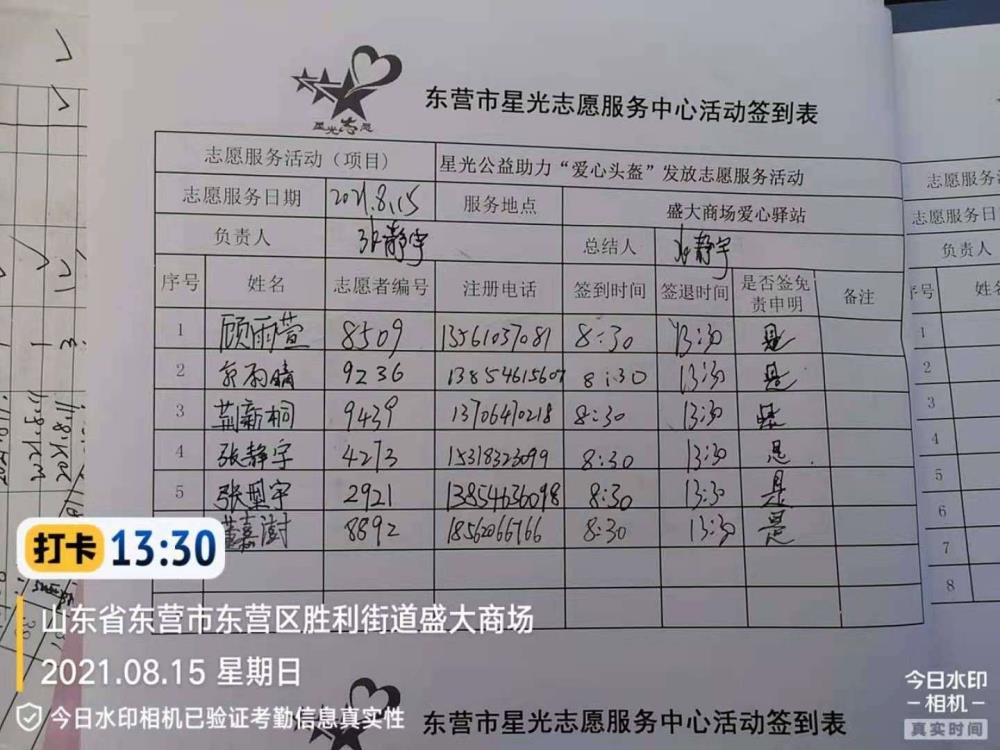 星光志愿
东营市星光志愿服务中心活动签到表
志愿服务活动（项目） 星光公益助力“爱心头盔”发放志愿服务活动
志愿服务日期 2021.8.15 服务地点 盛大商场爱心驿站
负责人 张静宇 总结人 张静宇
序号 姓名 志愿者编号 注册电话 签到时间 签退时间 是否签免责申明 备注
1 顾雨萱 8509 13561037081 8:30 13:30 是
2 雨晴 9236 13854615607 8:30 13:30 是
3 荆新桐 9439 13706470218 8:30 13:30 是
4 张静宇 4273 15318323099 8:30 13:30 是
5 张宇 2921 13854636098 8:30 13:30 是
董嘉澍 8892 18562066766 8:30 13:30 是
志愿服务活
志愿服务日
负责人
序号 姓名
1
2
3
4
5
6
7
8
打卡 13:30
山东省东营市东营区胜利街道盛大商场
2021.08.15 星期日
今日水印相机已验证考勤信息真实性
今日水印
相机
真实时间
东营市星光志愿服务中心活动签到表